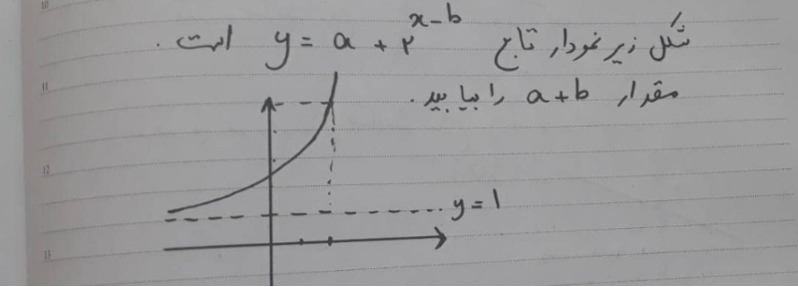 شکل زیر نمودار تابع y = a + ۲^{x-b} است.
مقدار a+b را بیابید.
y = ۱